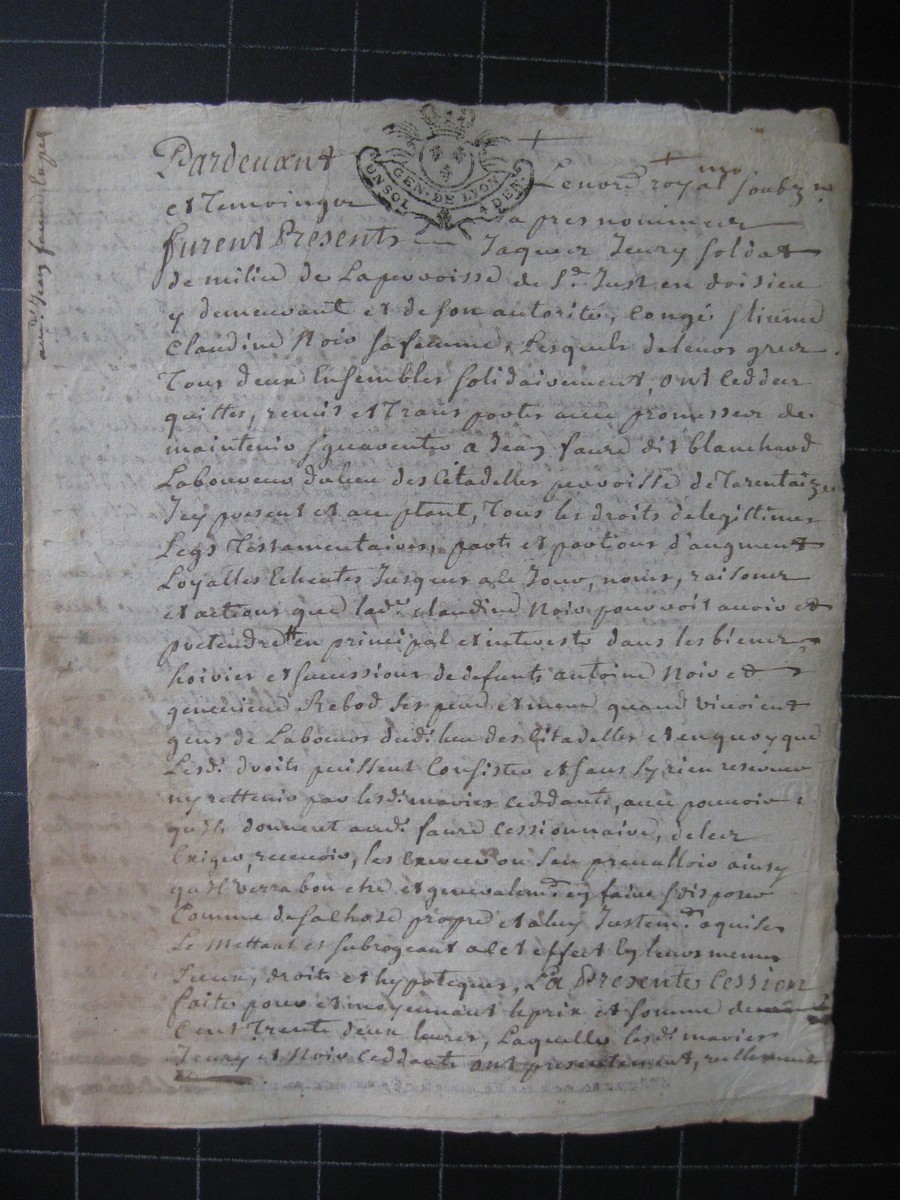 Pardevant
GEN. DE LYON
UN SOL 4 DEN
Le nore royal soubzne
et Temoingtz apres nommez
furent Presents Jaques Jeury soldat
de milice de La parroisse de St. Just en doisieu
y demeurant et de son autorité, Congé
Claudine Noir sa femme, Lesquels de leurs grez
Tous deux Ensembles solidairement, ont Ceddez
quittes, remis et Trans portes avec promesses de
maintenir garentir a Jean faure dit blanchard
Laboureur du lieu des Citadelles parroisse de Tarentaize
Icy present et acceptant, Tous les droits de legittimes
Legs Testamentaires, parts et portions d'augment
Loyalles Echeutes Jusques a ce Jour, noms, raisons
et actions que lade. Claudine Noir pouvoit avoir et
pretendre en principal et interests dans les biens
hoiries et successions de defunts antoine Noir et
genevieve Rebod ses pere et mere quand vivoient
gens de Labours dud. lieu des Citadelles et en quoy que
Lesd. droits puissent Consister et sans y rien reserver
ny rettenir par lesd. maries Ceddants, avec pouvoir
qu'ils donnent aud. faure Cessionnaire, de les
Exiger, recevoir, les ou s'en prevalloir ainsy
qu'il verra bon etre et generalemt. en faire disposer
Comme de sa chose propre et a luy Justemt. aquise
Le Mettant et subrogeant a cet effect en leurs memes
Lieux, droits et hypoteques, La Presente Cession
faite pour et moyennant le prix et somme de
Cent Trente deux livres, Laquelle lesd. maries
Jeury et Noir Ceddants ont presentement, reellement